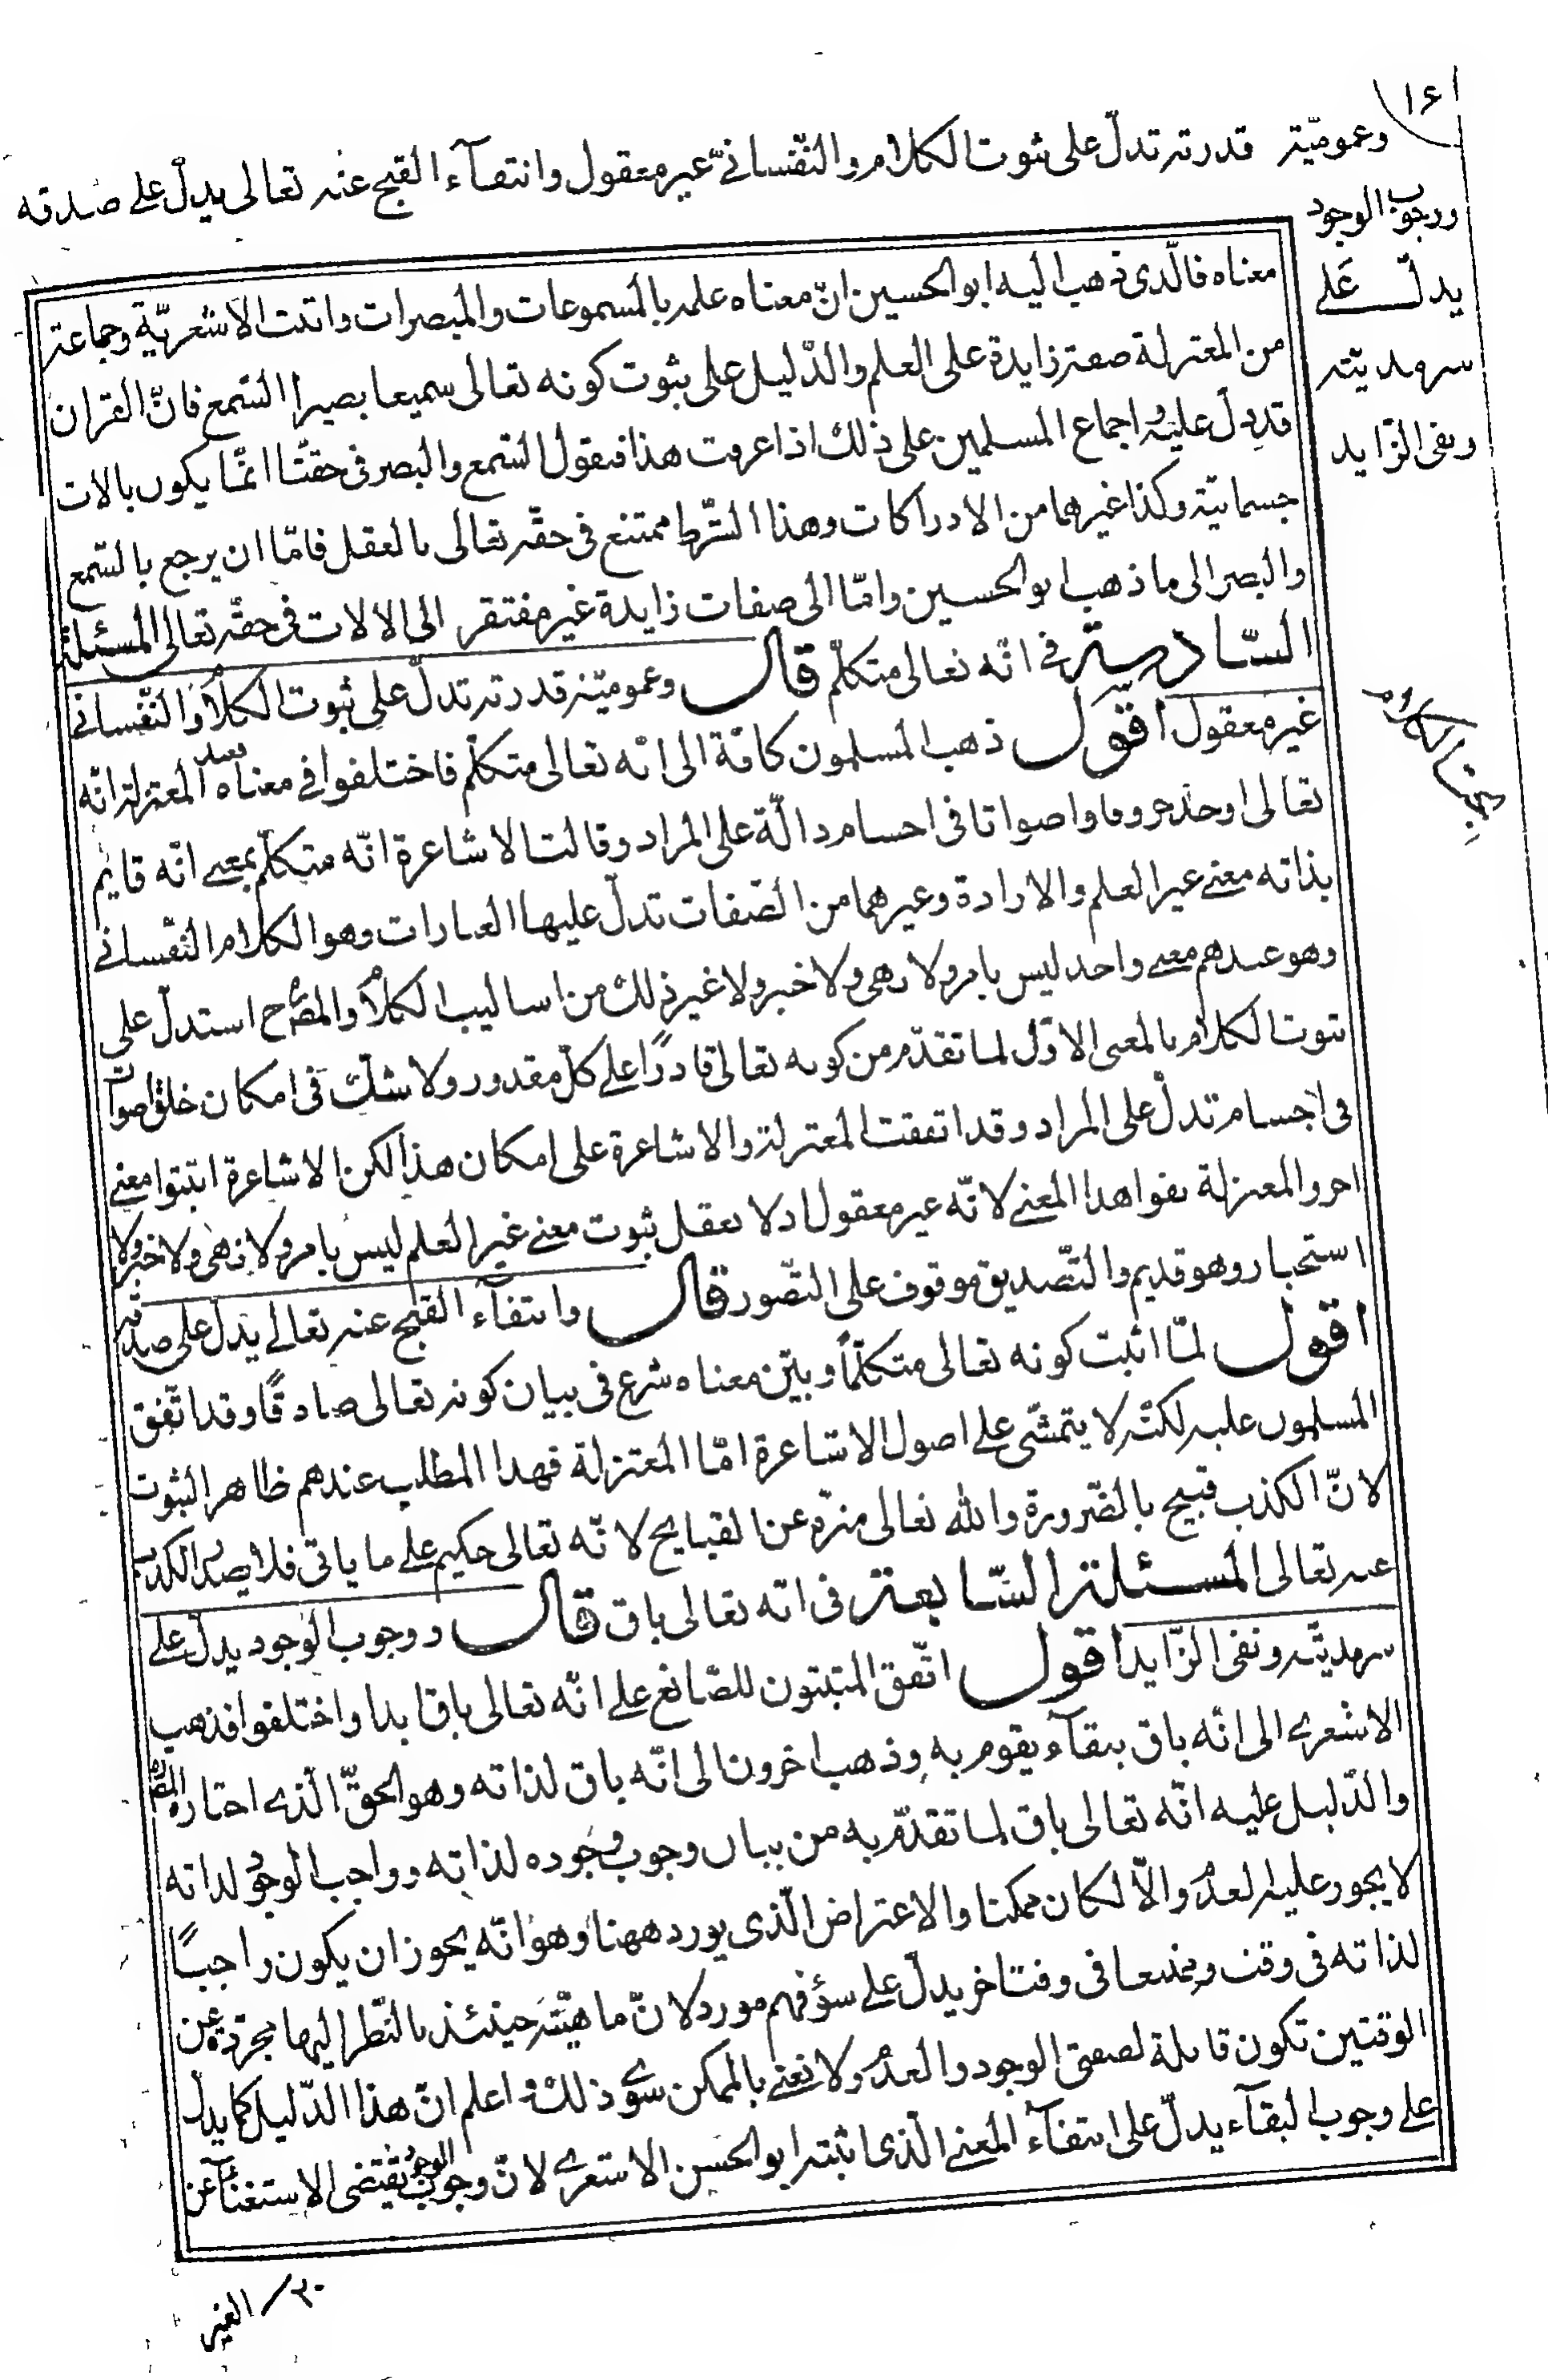 ١٦
وعموميّة قدرته تدلّ على ثبوت الكلام والنّفسانيّ غير معقول وانتفآء القبح عنه تعالى يدلّ على صدقه
ووجوب الوجود
يدلّ على
سرمديّته
ونفى الزّايد
معناه فالّذى ذهب اليه ابو الحسين انّ معناه علمه بالمسموعات والمبصرات واثبت الاشعريّة وجماعة
من المعتزلة صفة زايدة على العلم والدّليل على ثبوت كونه تعالى سميعا بصيرا السّمع فانّ القران
قد دلّ عليه واجماع المسلمين على ذلك اذا عرفت هذا فنقول السّمع والبصر فى حقّنا انّما يكون بالات
جسمانيّة وكذا غيرهما من الادراكات وهذا الشّرط ممتنع فى حقّه تعالى بالعقل فامّا ان يرجع بالسّمع
والبصر الى ما ذهب ابو الحسين وامّا الى صفات زايدة غير مفتقر الى الالات فى حقّه تعالى المسئلة
السّادسة فى انّه تعالى متكلّم قال وعموميّة قدرته تدلّ على ثبوت الكلام والنّفسانى
غير معقول اقول ذهب المسلمون كافّة الى انّه تعالى متكلّم فاختلفوا فى معناه فعند المعتزلة انّه
تعالى اوجد حروفا واصواتا فى اجسام دالّة على المراد وقالت الاشاعرة انّه متكلّم بمعنى انّه قايم
بذاته معنى غير العلم والارادة وغيرهما من الصّفات تدلّ عليها العبارات وهو الكلام النّفسانى
وهو عندهم معنى واحد ليس بامر ولا نهى ولا خبر ولا غير ذلك من اساليب الكلام والمصّ ره استدلّ على
ثبوت الكلام بالمعنى الاوّل لما تقدّم من كونه تعالى قادرًا على كلّ مقدور ولا شكّ فى امكان خلق اصوات
فى اجسام تدلّ على المراد وقد اتفقت المعتزلة والاشاعرة على امكان هذا لكن الاشاعرة اثبتوا معنى
اخر والمعتزلة نفوا هذا المعنى لانّه غير معقول اذ لا يعقل ثبوت معنى غير العلم ليس بامر ولا نهى ولا خبر ولا
استخبار وهو قديم والتّصديق موقوف على التّصور قال وانتفآء القبح عنه تعالى يدلّ على صدقه
اقول لمّا اثبت كونه تعالى متكلّمًا وبيّن معناه شرع فى بيان كونه تعالى صادقًا وقد اتّفق
المسلمون عليه لكنّه لا يتمشّى على اصول الاشاعرة امّا المعتزلة فهذا المطلب عندهم ظاهر الثبوت
لانّ الكذب قبيح بالضّرورة والله تعالى منزّه عن القبايح لانّه تعالى حكيم على ما ياتى فلا يصدر الكذب
عنه تعالى المسئلة السّابعة فى انّه تعالى باق قال ووجوب الوجود يدلّ على
سرمديّته ونفى الزّايد اقول اتّفق المثبتون للصّانع على انّه تعالى باق ابدا واختلفوا فذهب
الاشعرى الى انّه باق ببقآء يقوم به وذهب اخرون الى انّه باق لذاته وهو الحقّ الّذى اختاره المصّ ره
والدّليل عليه انّه تعالى باق لما تقدّم به من بيان وجوب وجوده لذاته وواجب الوجود لذاته
لا يجوز عليه العدم والّا لكان ممكنا والاعتراض الّذى يورد ههنا وهو انّه يجوز ان يكون واجبًا
لذاته فى وقت وممتنعا فى وقت اخر يدلّ على سوء فهم مورده لانّ ماهيّته حينئذ بالنّظر اليها مجرّدة عن
الوقتين تكون قابلة لصفتى الوجود والعدم ولا نعنى بالممكن سوى ذلك واعلم انّ هذا الدّليل كما يدلّ
على وجوب البقآء يدلّ على انتفآء المعنى الّذى اثبته ابو الحسن الاشعرى لانّ وجوب الوجود يقتضى الاستغنآء عن
الغير